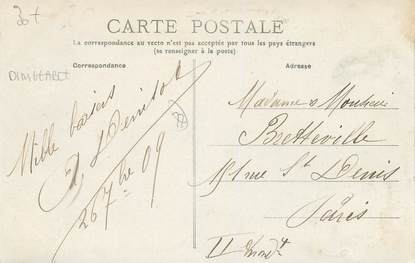 30+
CARTE POSTALE
La correspondance au recto n'est pas acceptée par tous les pays étrangers
(se renseigner à la poste)
Correspondance
Adresse
DIMDEABET
Mille baisers
Denisot
26 7bre 09
Madame & Monsieur
Bretteville
rue St Denis
Paris
II